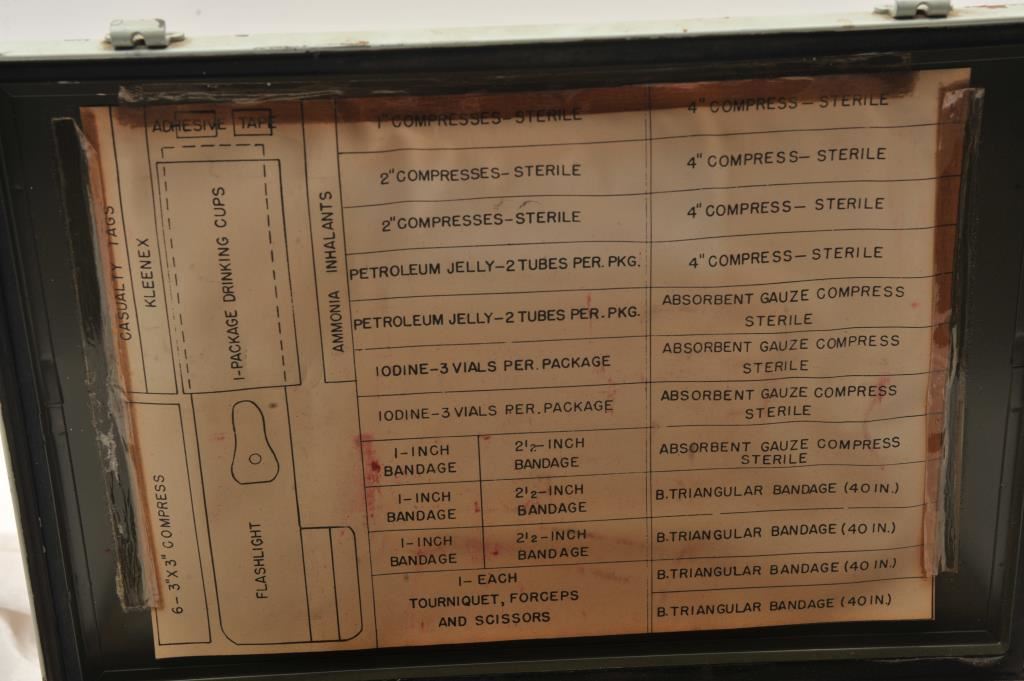 CASUALTY TAGS
KLEENEX
ADHESIVE TAPE
1-PACKAGE DRINKING CUPS
AMMONIA INHALANTS
6-3"X3" COMPRESS
FLASHLIGHT
1" COMPRESSES-STERILE
2" COMPRESSES-STERILE
2" COMPRESSES-STERILE
PETROLEUM JELLY-2 TUBES PER. PKG.
PETROLEUM JELLY-2 TUBES PER. PKG.
IODINE-3 VIALS PER. PACKAGE
IODINE-3 VIALS PER. PACKAGE
1-INCH
BANDAGE
2½-INCH
BANDAGE
1-INCH
BANDAGE
2½-INCH
BANDAGE
1-INCH
BANDAGE
2½-INCH
BANDAGE
1-EACH
TOURNIQUET, FORCEPS
AND SCISSORS
4" COMPRESS-STERILE
4" COMPRESS-STERILE
4" COMPRESS-STERILE
4" COMPRESS-STERILE
ABSORBENT GAUZE COMPRESS
STERILE
ABSORBENT GAUZE COMPRESS
STERILE
ABSORBENT GAUZE COMPRESS
STERILE
ABSORBENT GAUZE COMPRESS
STERILE
B. TRIANGULAR BANDAGE (40 IN.)
B. TRIANGULAR BANDAGE (40 IN.)
B. TRIANGULAR BANDAGE (40 IN.)
B. TRIANGULAR BANDAGE (40 IN.)